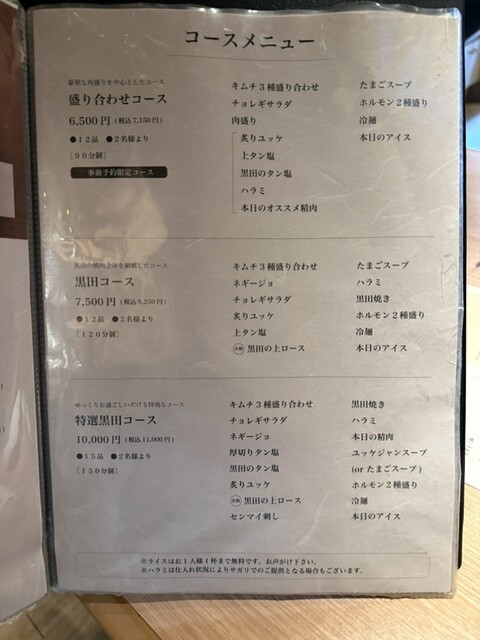 コースメニュー
豪華な肉盛りを中心としたコース
盛り合わせコース
6,500円（税込7,150円）
●12品　●2名様より
［90分制］
事前予約限定コース
キムチ3種盛り合わせ
チョレギサラダ
肉盛り
炙りユッケ
上タン塩
黒田のタン塩
ハラミ
本日のオススメ精肉
たまごスープ
ホルモン2種盛り
冷麺
本日のアイス
黒田の焼肉全体を網羅したコース
黒田コース
7,500円（税込8,250円）
●12品　●2名様より
［120分制］
キムチ3種盛り合わせ
ネギージョ
チョレギサラダ
炙りユッケ
上タン塩
黒田の上ロース
たまごスープ
ハラミ
黒田焼き
ホルモン2種盛り
冷麺
本日のアイス
ゆっくりお過ごしいただける特別なコース
特選黒田コース
10,000円（税込11,000円）
●15品　●2名様より
［150分制］
キムチ3種盛り合わせ
チョレギサラダ
ネギージョ
厚切りタン塩
黒田のタン塩
炙りユッケ
黒田の上ロース
センマイ刺し
黒田焼き
ハラミ
本日の精肉
ユッケジャンスープ
(or たまごスープ)
ホルモン2種盛り
冷麺
本日のアイス
※ライスはお1人様1杯まで無料です。お声がけ下さい。
※ハラミは仕入れ状況によりサガリでのご提供となる場合もございます。